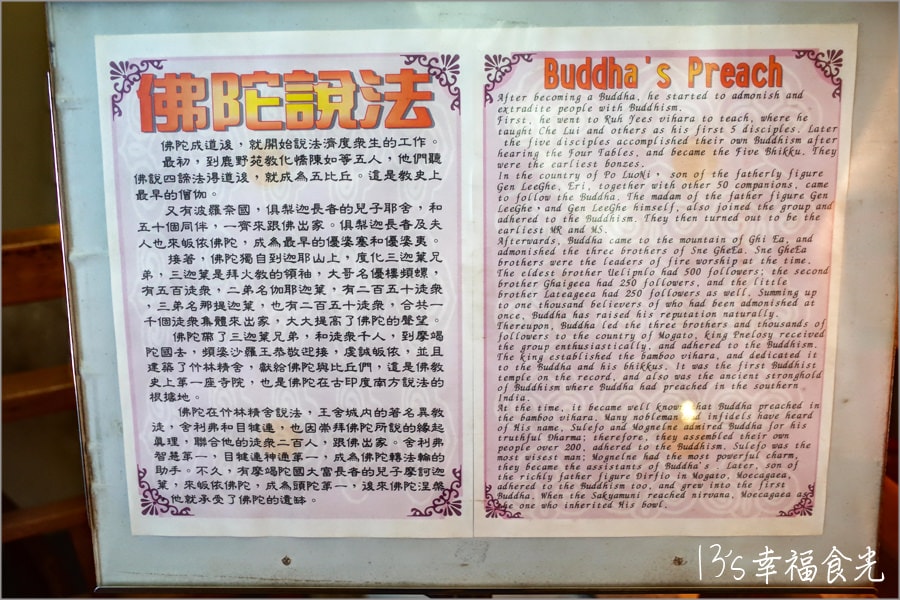 佛陀說法
佛陀成道後，就開始說法濟度眾生的工作。
最初，到鹿野苑教化憍陳如等五人，他們聽
佛說四諦法得道後，就成為五比丘。這是教史上
最早的僧伽。
又有波羅奈國，俱梨迦長者的兒子耶舍，和
五十個同伴，一齊來跟佛出家。俱梨迦長者及夫
人也來皈依佛陀，成為最早的優婆塞和優婆夷。
接著，佛陀獨自到迦耶山上，度化三迦葉兄
弟，三迦葉是拜火教的領袖，大哥名優樓頻螺，
有五百徒眾，二弟名伽耶迦葉，有二百五十徒眾
，三弟名那提迦葉，也有二百五十徒眾，合共一
千個徒眾集體來出家，大大提高了佛陀的聲望。
佛陀帶了三迦葉兄弟，和徒眾千人，到摩竭
陀國去，頻婆沙羅王恭敬迎接，虔誠皈依，並且
建築了竹林精舍，獻給佛陀與比丘們，這是佛教
史上第一座寺院，也是佛陀在古印度南方說法的
根據地。
佛陀在竹林精舍說法，王舍城內的著名異教
徒，舍利弗和目犍連，也因崇拜佛陀所說的緣起
真理，聯合他的徒眾二百人，跟佛出家。舍利弗
智慧第一，目犍連神通第一，成為佛陀轉法輪的
助手。不久，有摩竭陀國大富長者的兒子摩訶迦
葉，來皈依佛陀，成為頭陀第一，後來佛陀涅槃
他就承受了佛陀的遺缽。
Buddha's Preach
After becoming a Buddha, he started to admonish and
extradite people with Buddhism.
First, he went to Ruh Jees vihara to teach, where he
taught Che Lui and others as his first 5 disciples. Later
the five disciples accomplished their own Buddhism after
hearing the Four Tables, and became the Five Bhikku. They
were the earliest bonzes.
In the country of Po LuoNi, son of the fatherly figure
Gen LeeGhe, Eri, together with other 50 companions, came
to follow the Buddha. The madam of the father figure Gen
LeeGhe, and Gen LeeGhe himself, also joined the group and
adhered to the Buddhism. They then turned out to be the
earliest MR and MS.
Afterwards, Buddha came to the mountain of Ghi Ea, and
admonished the three brothers of Sne GheEa. Sne GheEa
brothers were the leaders of fire worship at the time.
The eldest brother Uelipmlo had 500 followers; the second
brother Ghaigeea had 250 followers, and the little
brother Lateageea had 250 followers as well. Summing up
to one thousand believers of who had been admonished at
once, Buddha has raised his reputation naturally.
Thereupon, Buddha led the three brothers and thousands of
followers to the country of Mogato, king Pnelosy received
the group enthusiastically, and adhered to the Buddhism.
The king established the bamboo vihara, and dedicated it
to the Buddha and his bhikkus. It was the first Buddhist
temple on the record, and also was the ancient stronghold
of Buddhism where Buddha had preached in the southern
India.
At the time, it became well know that Buddha preached in
the bamboo vihara. Many nobleman and infidels have heard
of His name, Sulefo and Mognelne admired Buddha for his
truthful Dharma; therefore, they assembled their own
people over 200, adhered to the Buddhism. Sulefo was the
most wisest man; Mognelne had the most powerful charm,
they became the assistants of Buddha's . Later, son of
the richly father figure Dirfio in Mogato, Moecagaea,
adhered to the Buddhism too, and grew into the first
Buddha. When the Sakyamuni reached nirvana, Moecagaea as
the one who inherited His bowl.
13's幸福食光